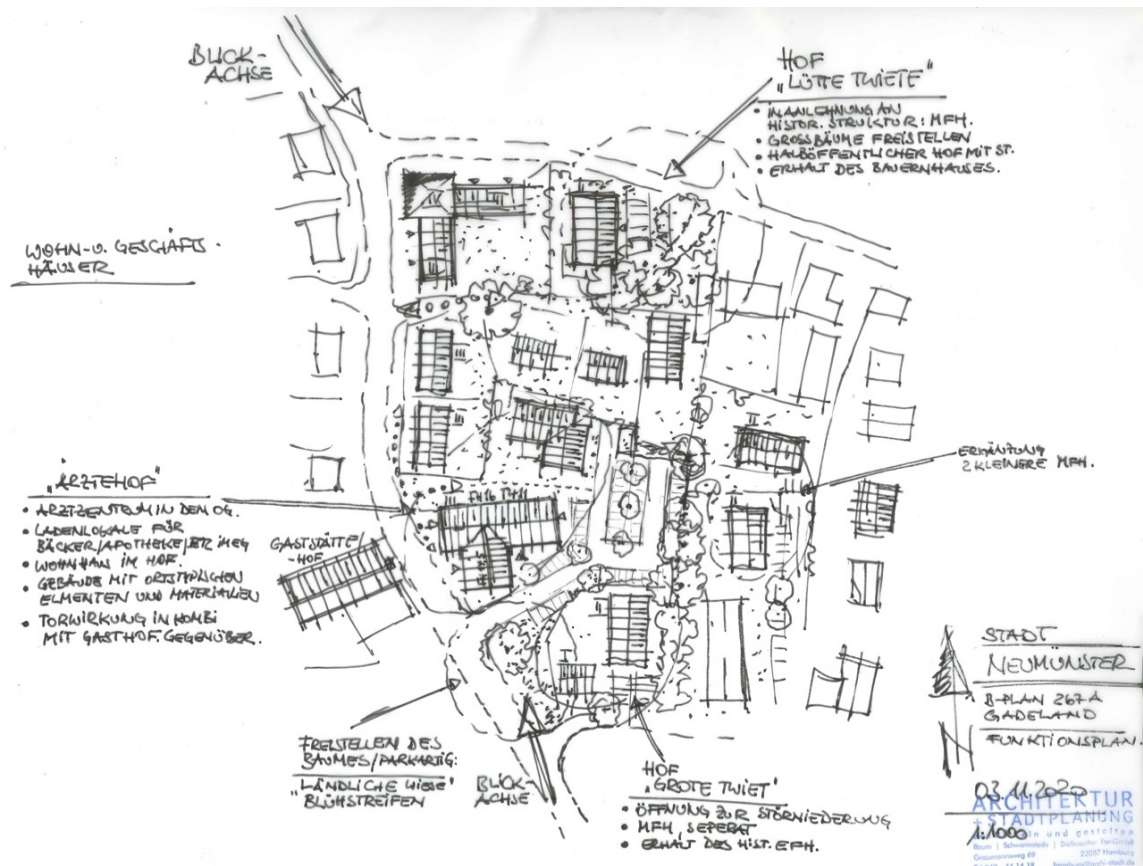 BLICK-
ACHSE
HOF
"LÜTTE TWIETE"
• IN ANLEHNUNG AN
HISTOR. STRUKTUR: MFH.
• GROSSBÄUME FREISTELLEN
• HALBÖFFENTLICHER HOF MIT ST.
• ERHALT DES BAUERNHAUSES.
WOHN- U. GESCHÄFTS-
HÄUSER
"ÄRZTEHOF"
• ARZTZENTRUM IN DEN OG.
• LADENLOKALE FÜR
BÄCKER/APOTHEKE/
• WOHNHAUS IM HOF.
• GEBÄUDE MIT ORTSTYPISCHEN
ELMENTEN UND MATERIALIEN
• TORWIRKUNG IN KOMBI
MIT GASTHOF. GEGENÜBER.
GASTSTÄTTE/
-HOF
ERGÄNZUNG
2 KLEINERE MFH.
FREISTELLEN DES
BAUMES/PARKARTIG:
"LÄNDLICHE WIESE"
BLÜHSTREIFEN
BLICK-
ACHSE
HOF
"GROTE TWIET"
• ÖFFNUNG ZUR STÖRNIEDERUNG
• MFH, SEPERAT
• ERHALT DES HIST. EFH.
STADT
NEUMÜNSTER
B-PLAN 267A
GADELAND
FUNKTIONSPLAN.
03.11.2020
1:1000
ARCHITEKTUR
+ STADTPLANUNG
n und gestalten
Baum | Schwormstede |
Graumannsweg 69
22087 Hamburg